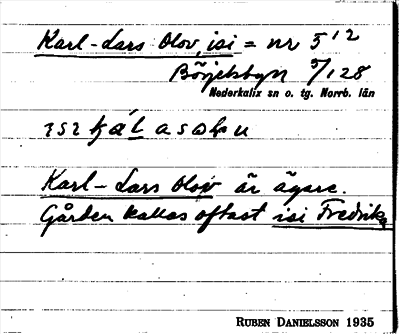 Karl-Lars Olov, isi = nr 5¹²
Börjelsbyn 5/128
Nederkalix sn o. tg. Norrb. län
Karl-Lars Olov är ägare.
Gården kallas oftast isi Fredriks
RUBEN DANIELSSON 1935